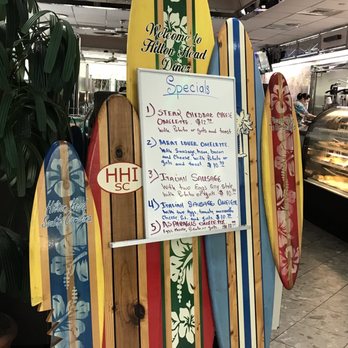 Welcome to
Hilton Head
Diner
Specials
1) STEAK CHEDDAR CHEESE
OMELETTE $12.99
With Potato or grits and toast
2) MEAT LOVER OMELETTE
With Sausage, ham, bacon
and cheese with Potato or
grits and toast $10.99
3) ITALIAN SAUSAGE
With two Eggs any style
with Potato or grits $10.99
4) ITALIAN SAUSAGE OMELETTE
5) ASPARAGUS OMELETTE
HHI
SC